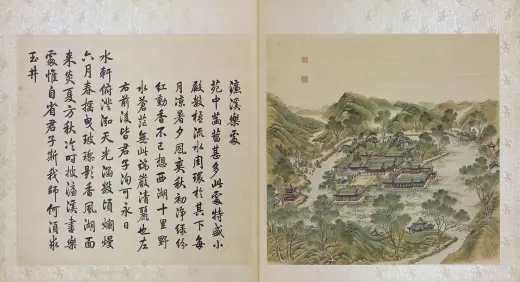 濂溪樂處
苑中菡萏甚多此處特盛小
殿數楹流水周環於其下每
月涼暑夕風爽秋初淨綠粉
紅動香不已想西湖十里野
水蒼茫無此端嚴清麗也左
右前後皆君子洵可永日
水軒俯澄泓天光涵數頃爛熳
六月春搖曳玻瓈影香風湖面
來炎夏方秋冷時披濂溪書樂
處惟自省君子斯我師何須求
玉井